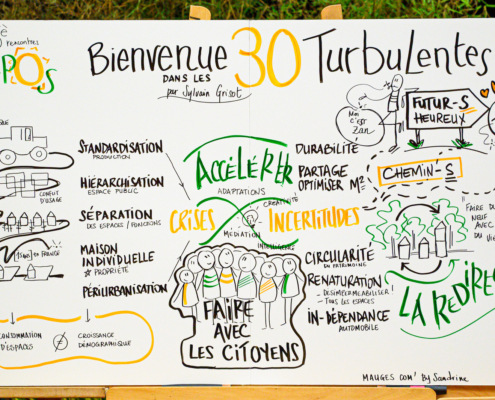 rencontres
POS
Bienvenue
DANS LES
30
Turbulentes
par Sylvain Grisot
STANDARDISATION
PRODUCTION
HIÉRARCHISATION
ESPACE PUBLIC
CONFLIT
D'USAGE
SÉPARATION
DES ESPACES / FONCTIONS
MAISON
INDIVIDUELLE
☆ PROPRIÉTÉ
PÉRIURBANISATION
CONSOMMATION
D'ESPACES
≠
CROISSANCE
DÉMOGRAPHIQUE
ACCÉLÉRER
ADAPTATIONS
CRISES
CRÉATIVITÉ
INCERTITUDES
MÉDIATION
FAIRE
AVEC
LES CITOYENS
DURABILITÉ
PARTAGE
OPTIMISER M²
CIRCULARITÉ
EN PATRIMOINE
RENATURATION
- DÉSIMPERMÉABILISER !
- TOUS LES ESPACES
IN-DÉPENDANCE
AUTOMOBILE
Moi
c'est
Zan
FUTUR-S
HEUREUX
CHEMIN-S
"FAIRE DU
NEUF
AVEC
DU
LA REDIREC
MAUGES COM' By Sandrine